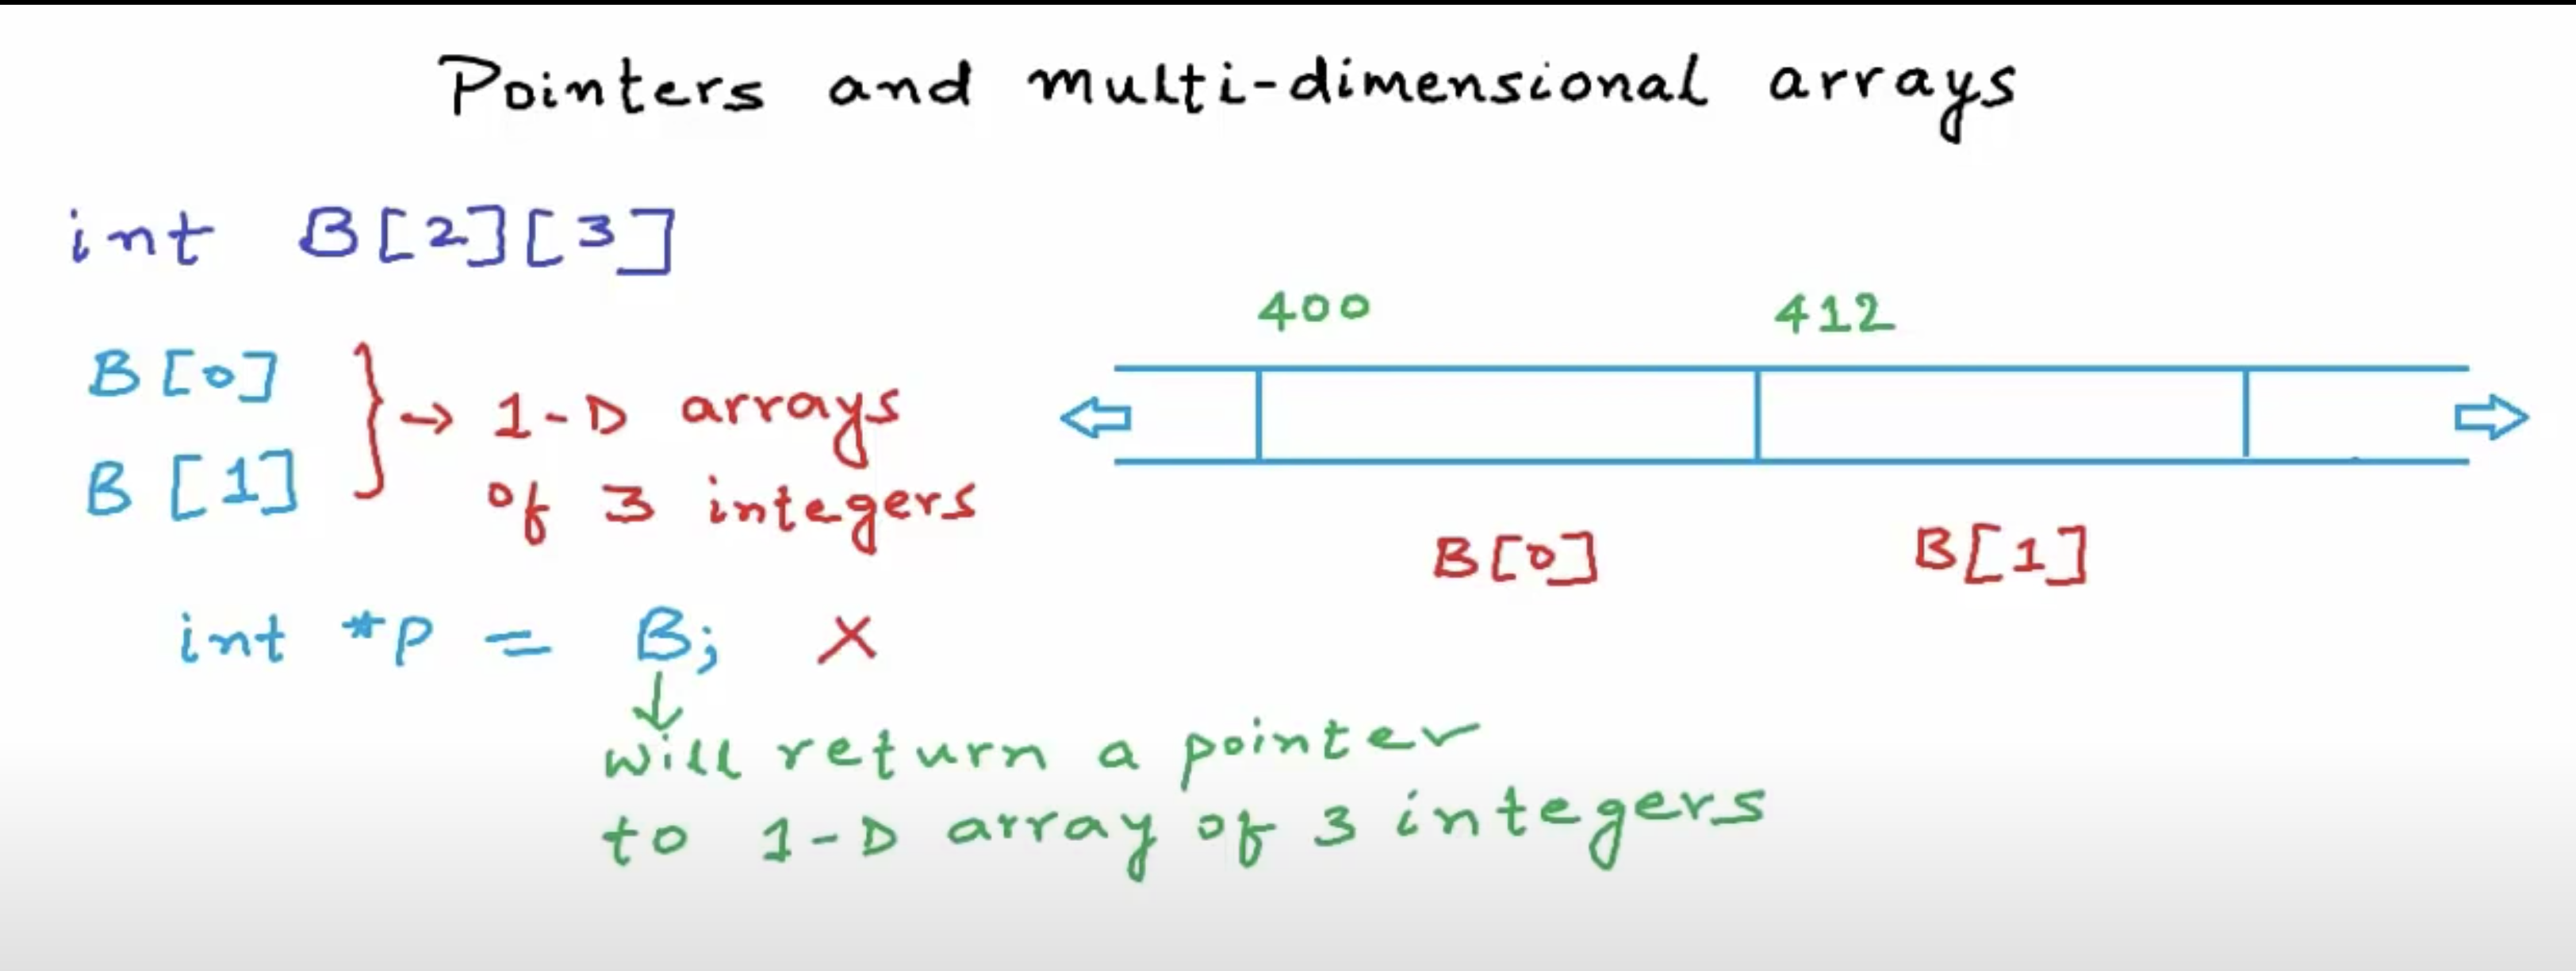 Pointers and multi-dimensional arrays
int B[2][3]
400 412
B[0]
B[1]
} → 1-D arrays
of 3 integers
B[0] B[1]
int *p = B; X
↓
will return a pointer
to 1-D array of 3 integers